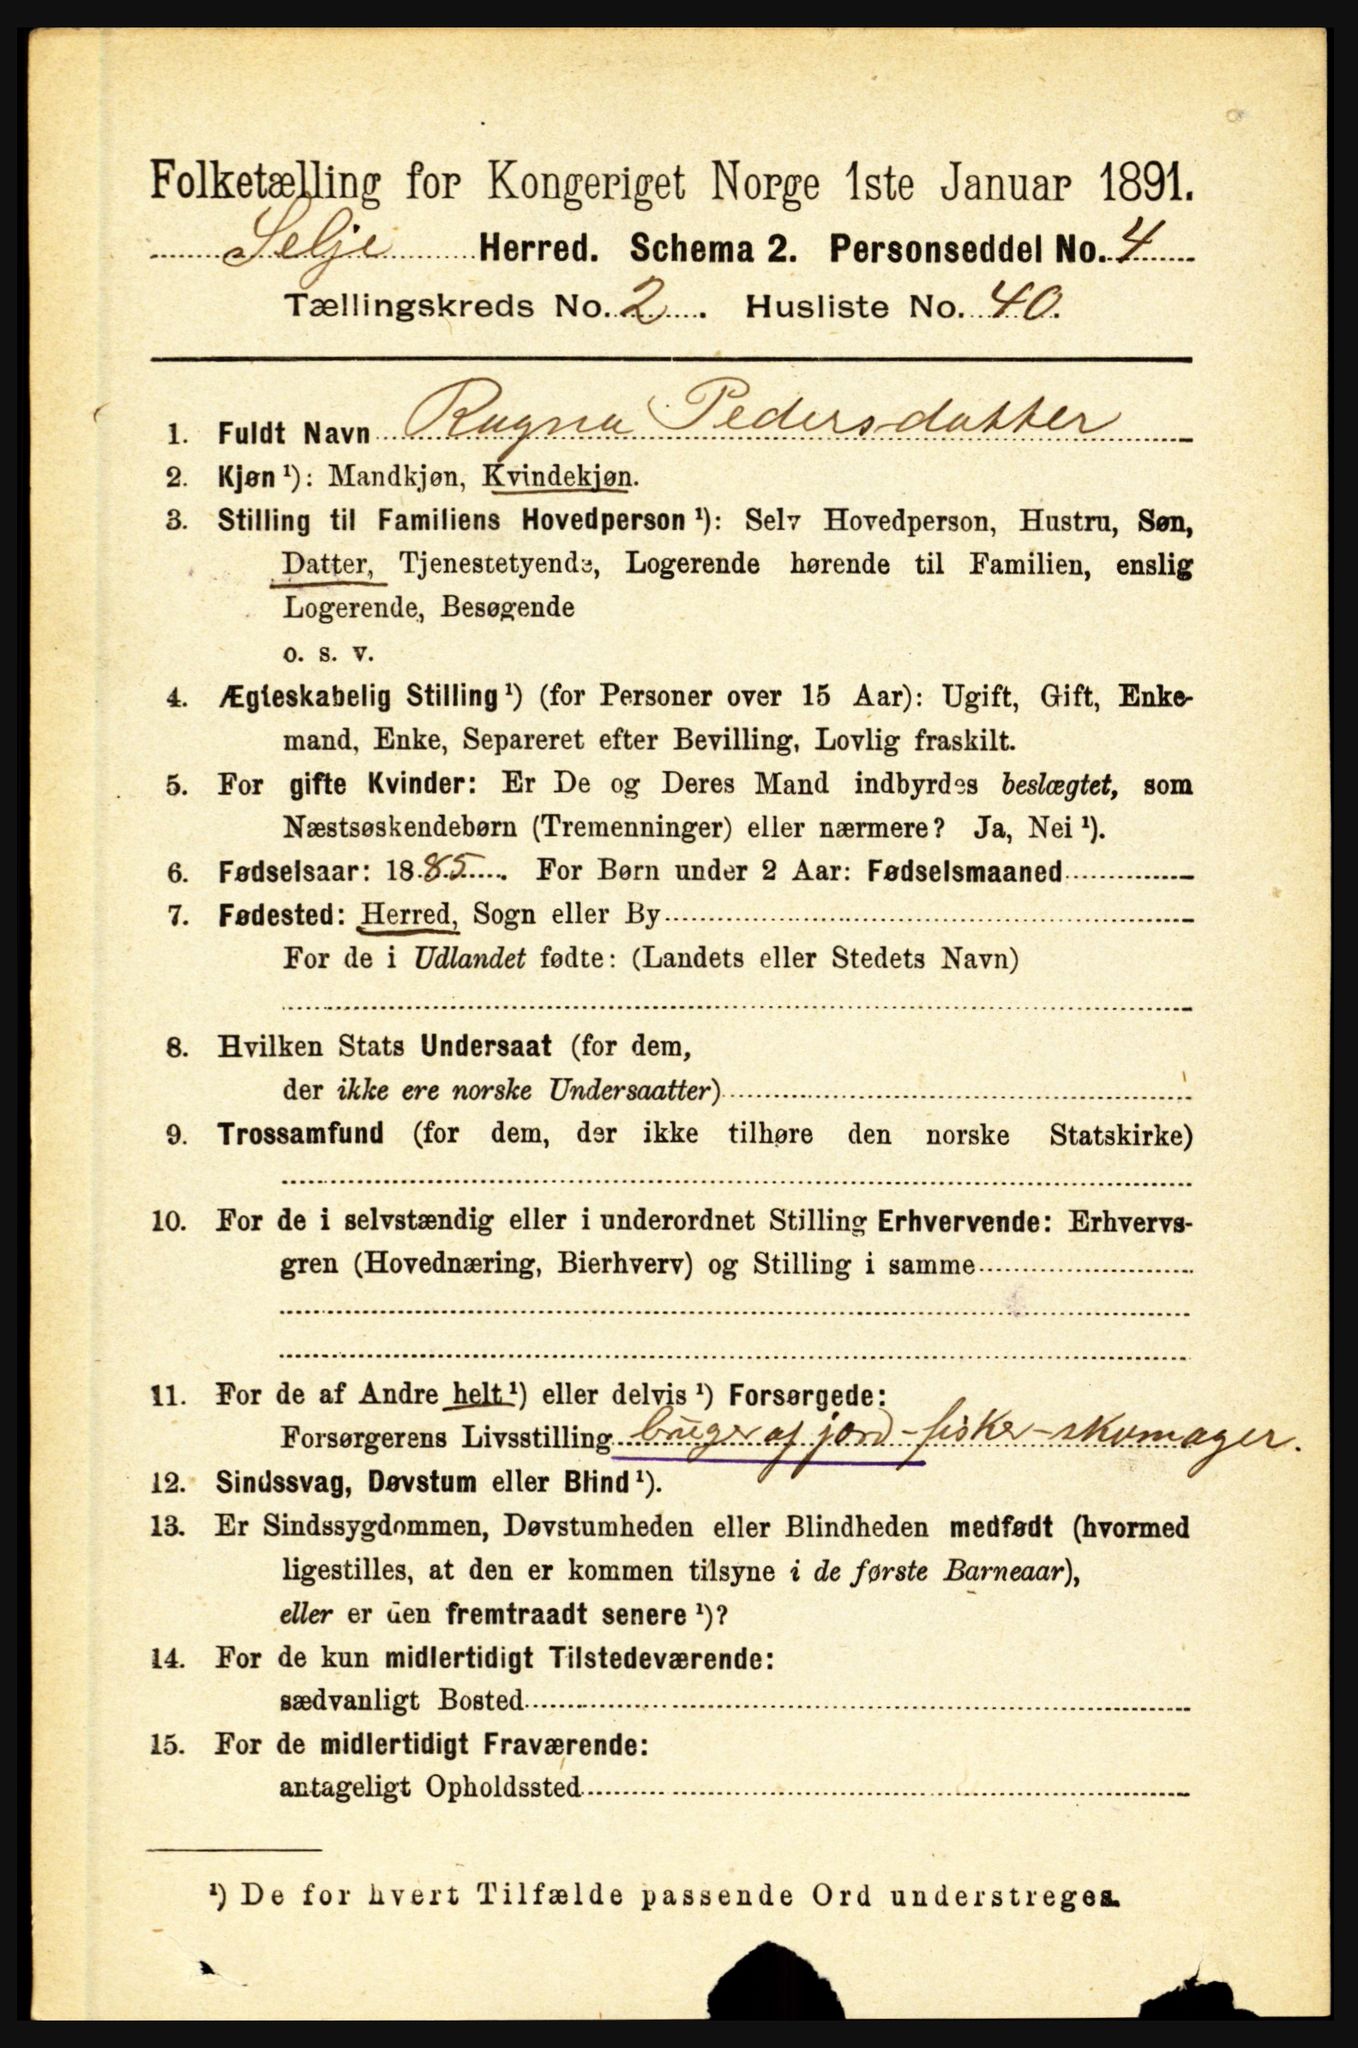 Folketælling for Kongeriget Norge 1ste Januar 1891.
Selje Herred. Schema 2. Personseddel No. 4
Tællingskreds No. 2. Husliste No. 40.
1. Fuldt Navn Ragna Pedersdatter
2. Kjøn ¹): Mandkjøn, Kvindekjøn.
3. Stilling til Familiens Hovedperson ¹): Selv Hovedperson, Hustru, Søn,
Datter, Tjenestetyende, Logerende hørende til Familien, enslig
Logerende, Besøgende
o. s. v.
4. Ægteskabelig Stilling ¹) (for Personer over 15 Aar): Ugift, Gift, Enke-
mand, Enke, Separeret efter Bevilling, Lovlig fraskilt.
5. For gifte Kvinder: Er De og Deres Mand indbyrdes beslægtet, som
Næstsøskendebørn (Tremenninger) eller nærmere? Ja, Nei ¹).
6. Fødselsaar: 1885. For Børn under 2 Aar: Fødselsmaaned
7. Fødested: Herred, Sogn eller By
For de i Udlandet fødte: (Landets eller Stedets Navn)
8. Hvilken Stats Undersaat (for dem,
der ikke ere norske Undersaatter)
9. Trossamfund (for dem, der ikke tilhøre den norske Statskirke)
10. For de i selvstændig eller i underordnet Stilling Erhvervende: Erhvervs-
gren (Hovednæring, Bierhverv) og Stilling i samme
11. For de af Andre helt ¹) eller delvis ¹) Forsørgede:
Forsørgerens Livsstilling bruger af jord - fisker - skomager.
12. Sindssvag, Døvstum eller Blind ¹).
13. Er Sindssygdommen, Døvstumheden eller Blindheden medfødt (hvormed
ligestilles, at den er kommen tilsyne i de første Barneaar),
eller er den fremtraadt senere ¹)?
14. For de kun midlertidigt Tilstedeværende:
sædvanligt Bosted
15. For de midlertidigt Fraværende:
antageligt Opholdssted
¹) De for hvert Tilfælde passende Ord understreges.